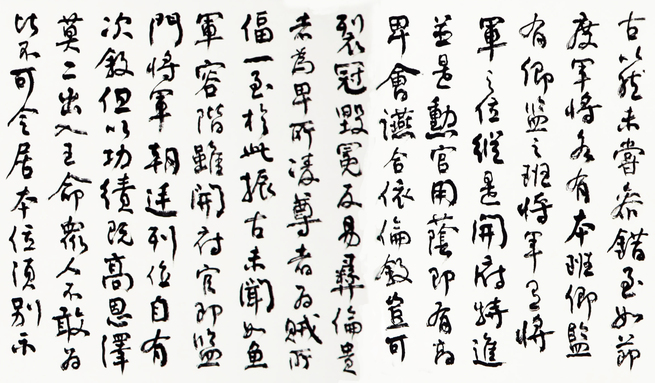 古以然未嘗參錯至如節
度軍將各有本班卿監
有卿監之班將軍有將
軍之位縱是開府特進
並是勳官用蔭即有高
卑會讌合依倫敘豈可
裂冠毀冕反易彝倫貴
者為卑所凌尊者為賊所
偪一至於此振古未聞如魚
軍容階雖開府官即監
門將軍朝廷列位自有
次敘但以功績既高恩澤
莫二出入王命眾人不敢為
比不可令居本位須別示